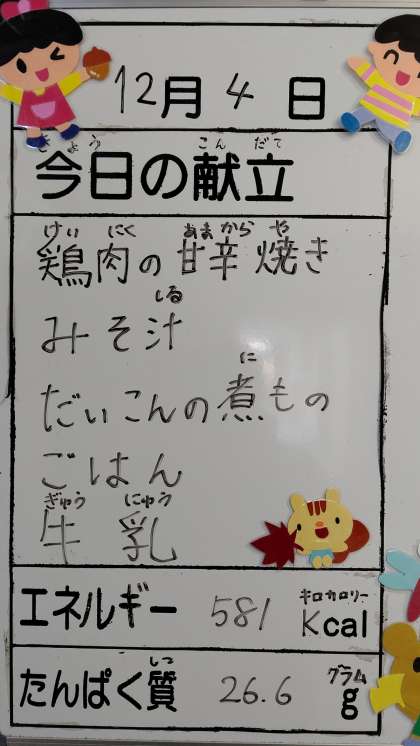 12月4日
きょう こんだて
今日の献立
けい にく あまから や
鶏肉の甘辛焼き
しる
みそ汁
に
だいこんの煮もの
ごはん
ぎゅう にゅう
牛乳
キロカロリー
エネルギー 581 Kcal
しつ グラム
たんぱく質 26.6 g